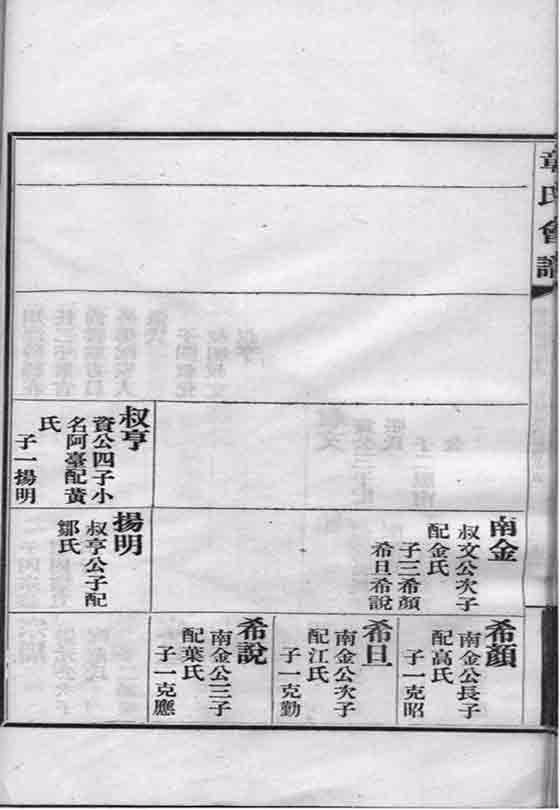 章氏會譜
叔亨
資公四子小
名阿臺配黃
氏
子一揚明
南金
叔文公次子
配金氏
子三希顏
希旦希說
揚明
叔亨公子配
鄒氏
希顏
南金公長子
配高氏
子一克昭
希旦
南金公次子
配江氏
子一克勤
希說
南金公三子
配葉氏
子一克應